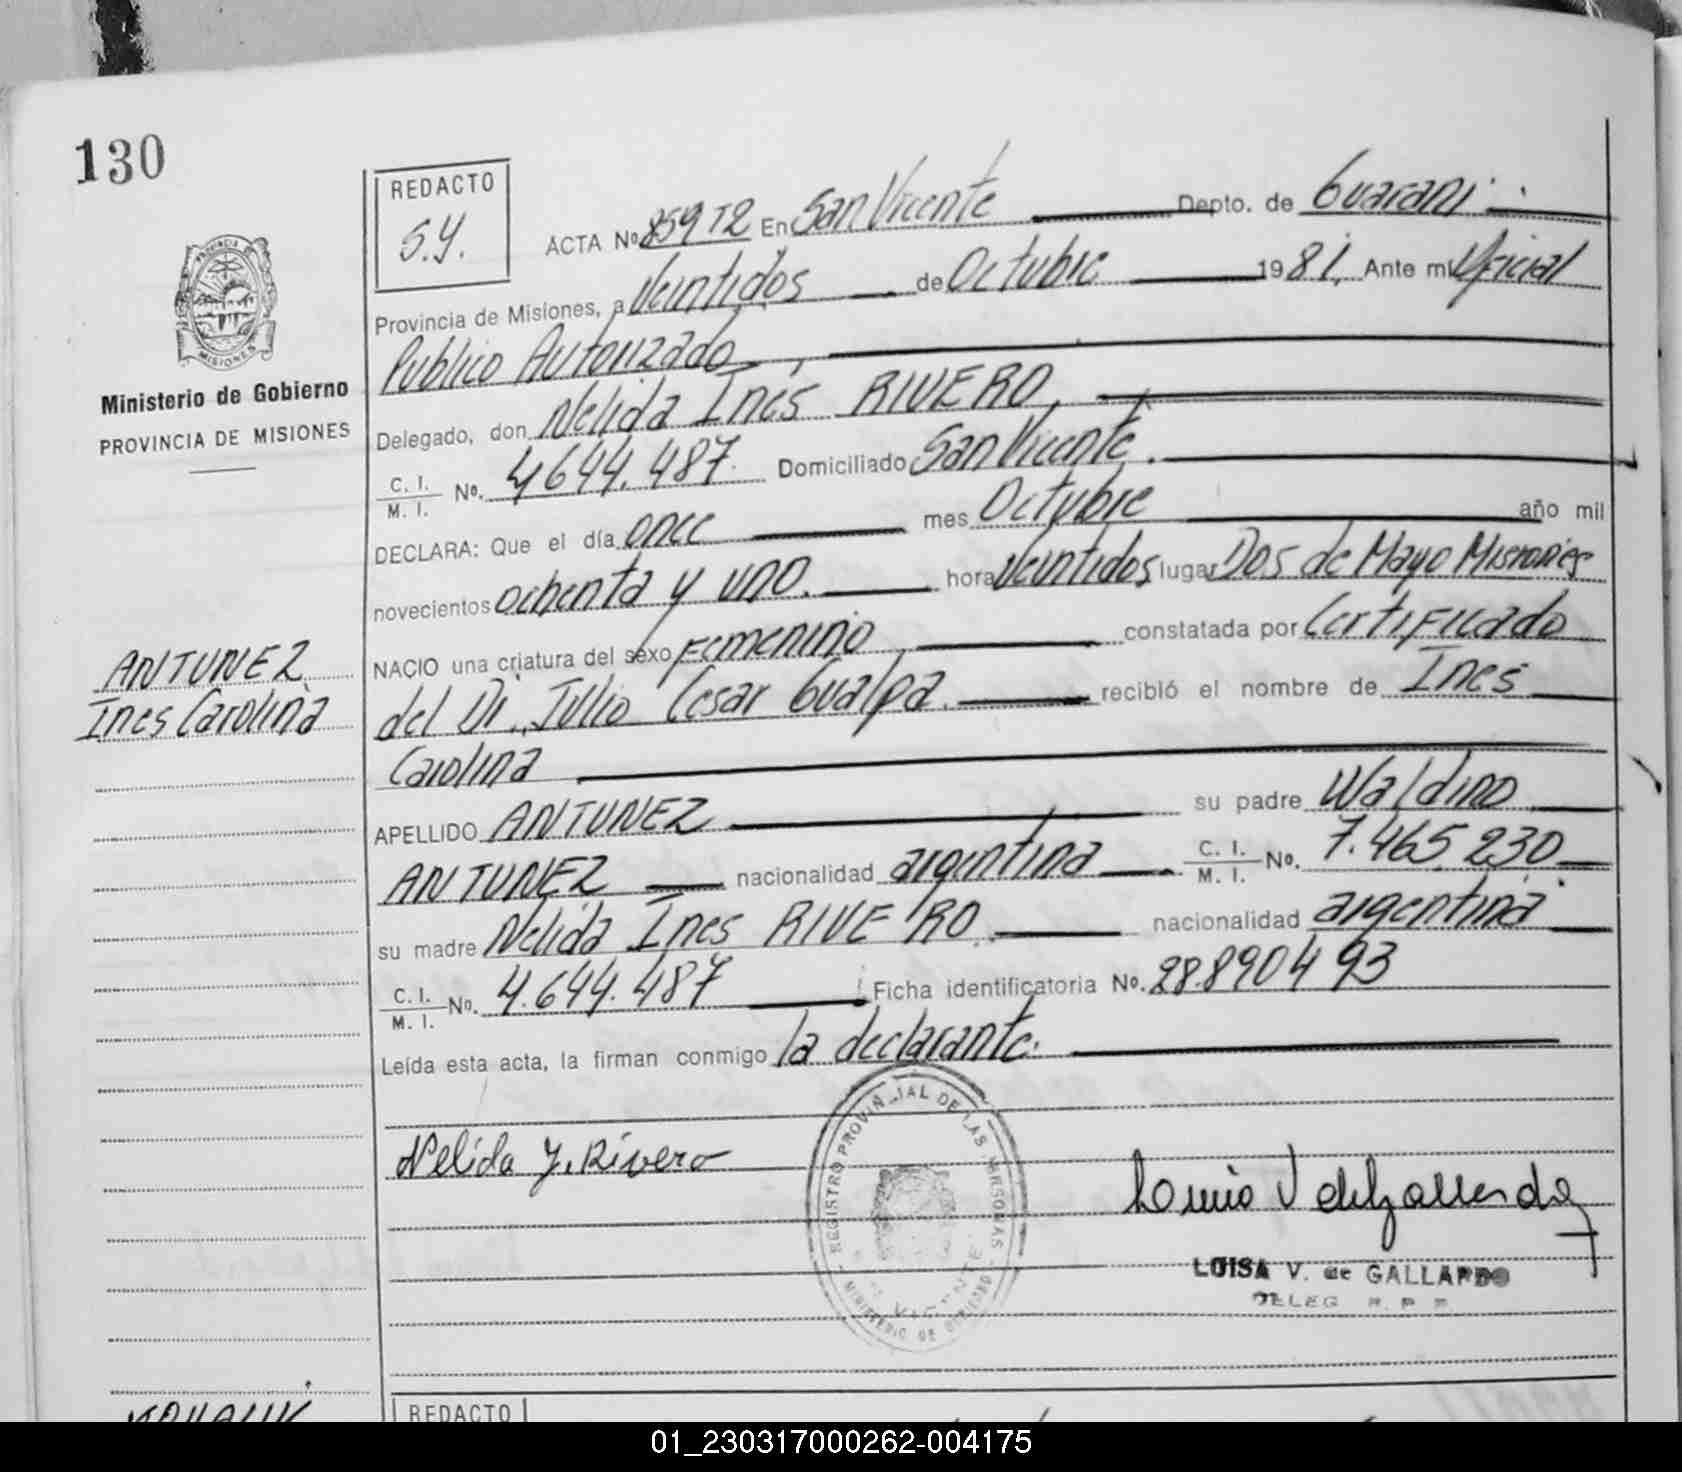 130
REDACTO
S.Y.
ACTA No. 859 T2 En San Vicente Depto. de Guarani.
Provincia de Misiones, a Veintidos de Octubre 1981. Ante mi Oficial
Publico Autorizado,
Delegado, don Nelida Ines RIVERO,
C. I. / M. I. No. 4644.487. Domiciliado San Vicente.
DECLARA: Que el día once mes Octubre año mil
novecientos ochenta y uno. hora Veintidos lugar Dos de Mayo Misiones
NACIO una criatura del sexo Femenino, constatada por Certificado
del Dr. Julio Cesar Gualpa. recibió el nombre de Ines
Carolina
APELLIDO ANTUNEZ su padre Waldino
ANTUNEZ nacionalidad argentina C. I. / M. I. No. 7.465.230
su madre Nelida Ines RIVERO. nacionalidad argentina
C. I. / M. I. No. 4.644.487 Ficha identificatoria No. 28.890493
Leída esta acta, la firman conmigo la declarante.
Nelida Y. Rivero
LUISA V. de GALLARDO
DELEG R. P. P.
REGISTRO PROVINCIAL DE LAS PERSONAS
MINISTERIO DE GOBIERNO
VICENTE
PROVINCIA DE
MISIONES
Ministerio de Gobierno
PROVINCIA DE MISIONES
ANTUNEZ
Ines Carolina
REDACTO
01_230317000262-004175